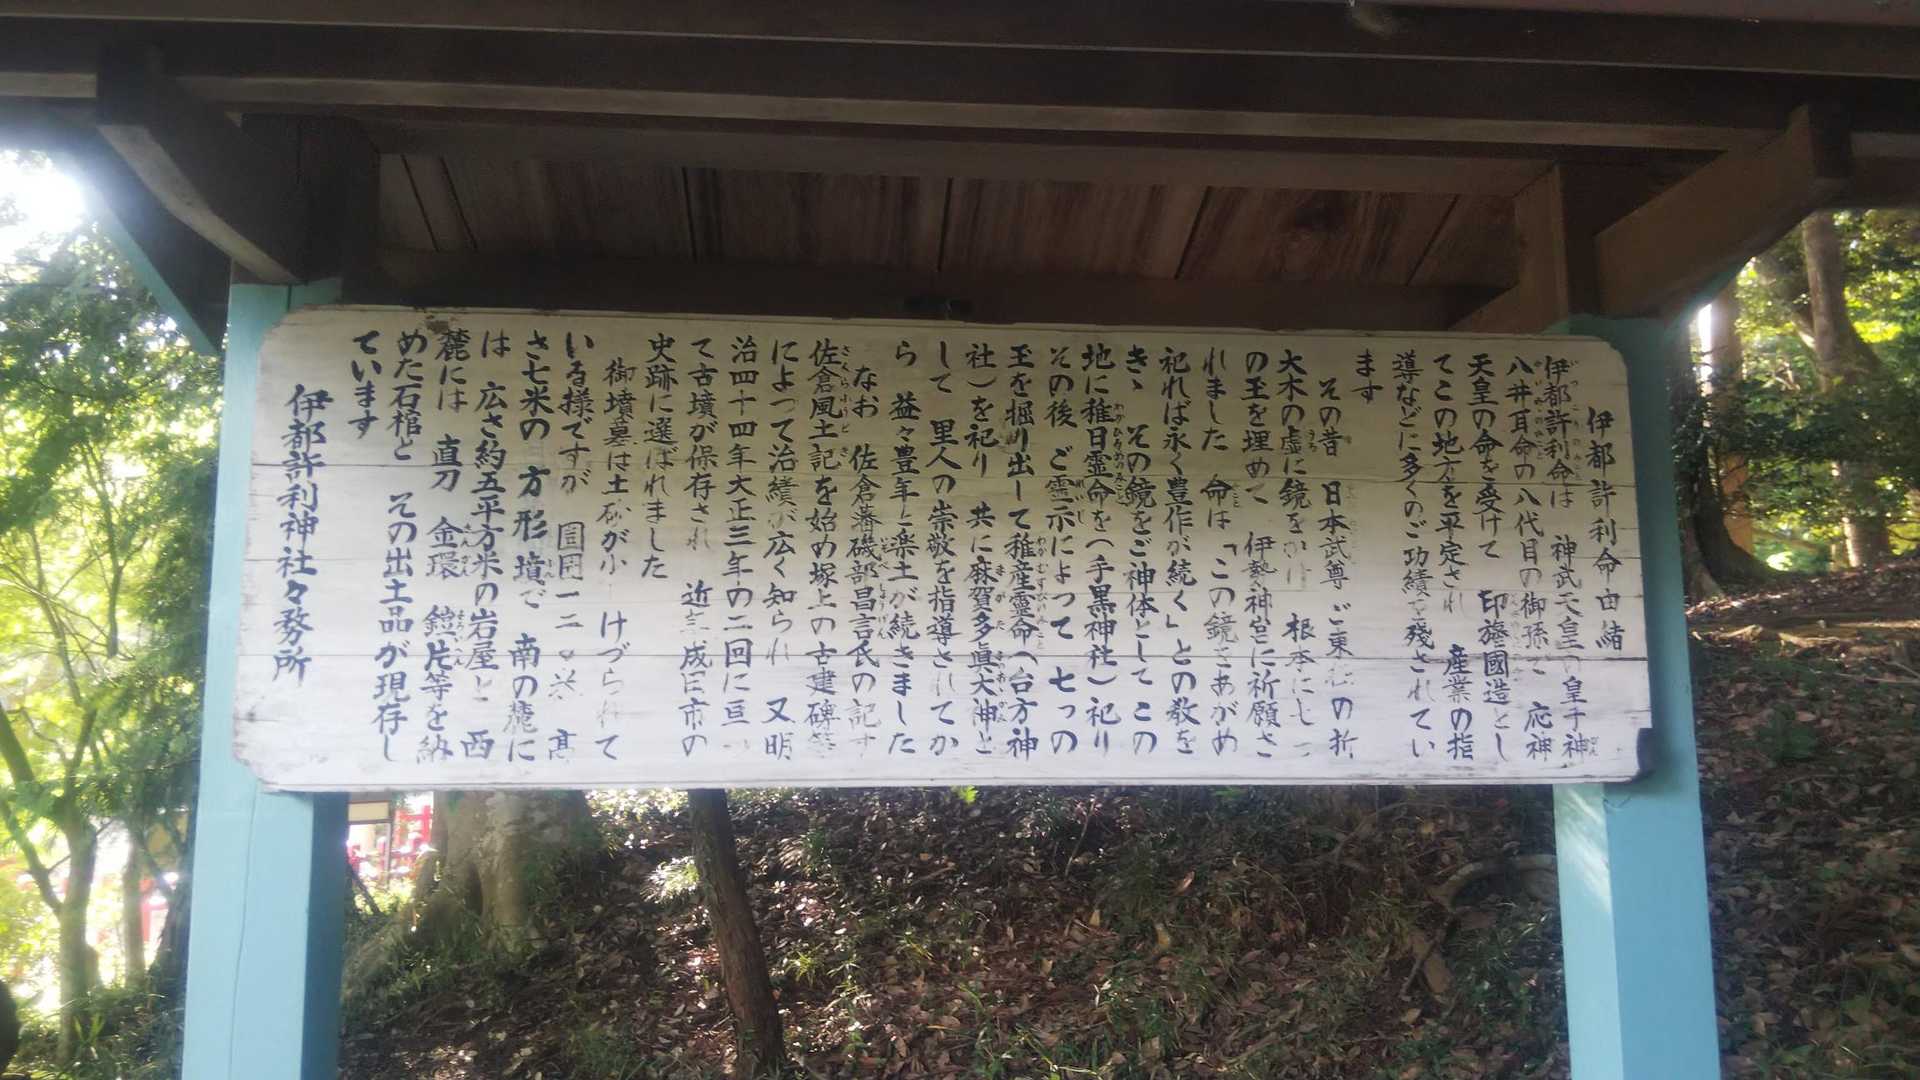 伊都許利命由緒
伊都許利命は 神武天皇の皇子神
八井耳命の八代目の御孫で 応神
天皇の命を受けて 印旛國造とし
てこの地方を平定され 産業の指
導などに多くのご功績を残されてい
ます
その昔 日本武尊ご東 の折
大木の虚に鏡をかけ 根本に七つ
の玉を埋めて 伊勢神宮に祈願さ
れました 命は「この鏡をあがめ
祀れば永く豊作が続く」との教を
きゝ その鏡をご神体としてこの
地に稚日霊命を(手黒神社)祀り
その後 ご霊示によって 七っの
玉を掘り出して稚産霊命(台方神
社)を祀り 共に麻賀多眞大神と
して 里人の崇敬を指導されてか
ら 益々豊年と楽土が続きました
なお 佐倉藩磯部昌言氏の記す
佐倉風土記を始め塚上の古建碑等
によって治績が広く知られ 又明
治四十四年大正三年の二回に亘
て古墳が保存され 近 成田市の
史跡に選ばれました
御墳墓は土砂が小 けづられて
いる様ですが 圓周一二 米 高
さ七米の 方形墳で 南の麓に
は 広さ約五平方米の岩屋と 西
麓には 直刀 金環 鎧片等を納
めた石棺と その出土品が現存し
ています
伊都許利神社々務所